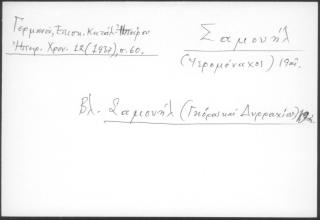 Γερμανού, Επισκ. Κατάλ. Ηπείρου
Ηπειρ. Χρον. 12 (1937), σ. 60.
Σαμουήλ
(Ιερομόναχος) 19
Βλ. Σαμουήλ (Γκόρας και Δυρραχίου)